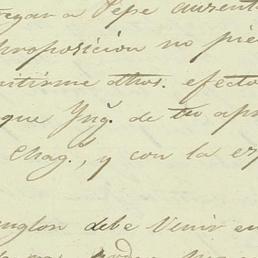 egar a Pepe aucent
proposición no pie
itirme dhos. efecto
que Yng. de tu apr
Chag., y con la es
nglon debe venir en